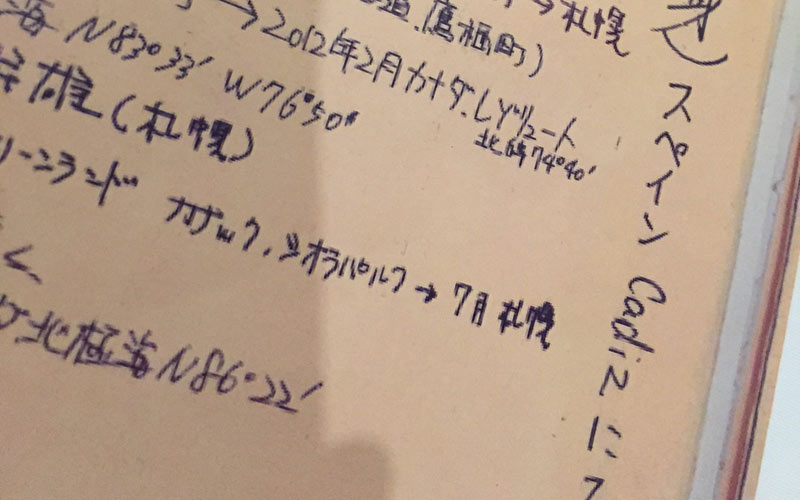 →札幌
道.鷹栖町)
→2012年2月カナダ.レゾリュート
北緯74°40′
海 N83°33′ W76°50″
雄(札幌)
ーンランド カナック,シオラパルク→7月札幌
北極海N86°22′
スペイン Cadizに